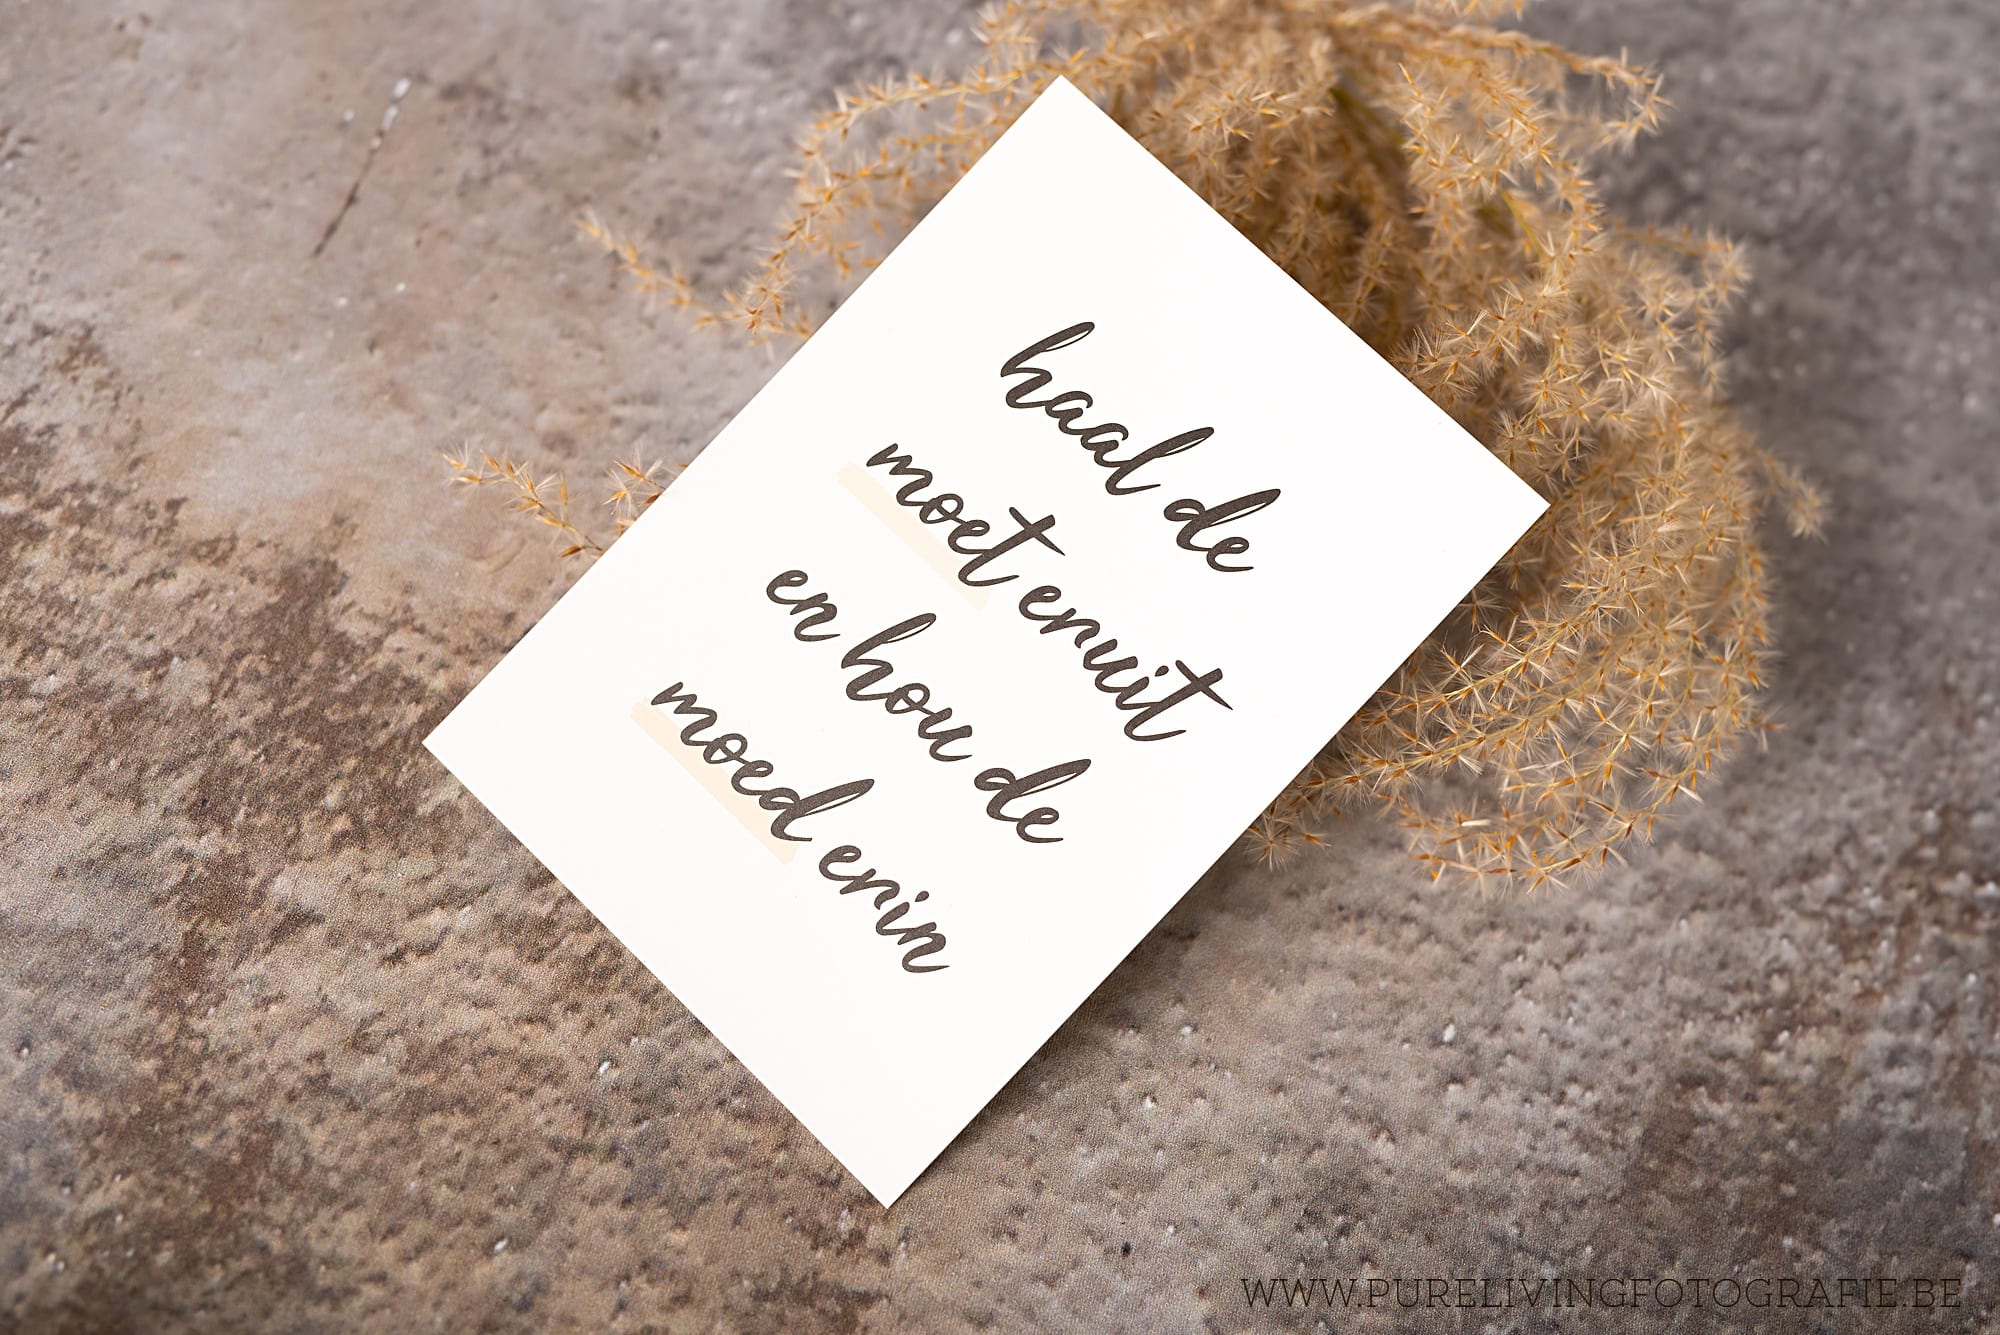 haal de
moet eruit
en hou de
moed erin
WWW.PURELIVINGFOTOGRAFIE.BE